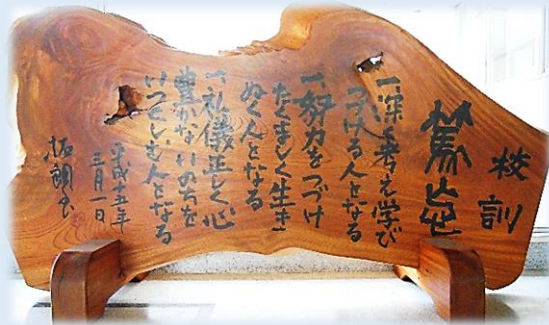 校訓
篤志
一深く考え学び
つづける人となる
一努力をつづけ
たくましく生き
ぬく人となる
一礼儀正しく心
豊かないのちを
いつくしむ人となる
平成十五年
三月一日